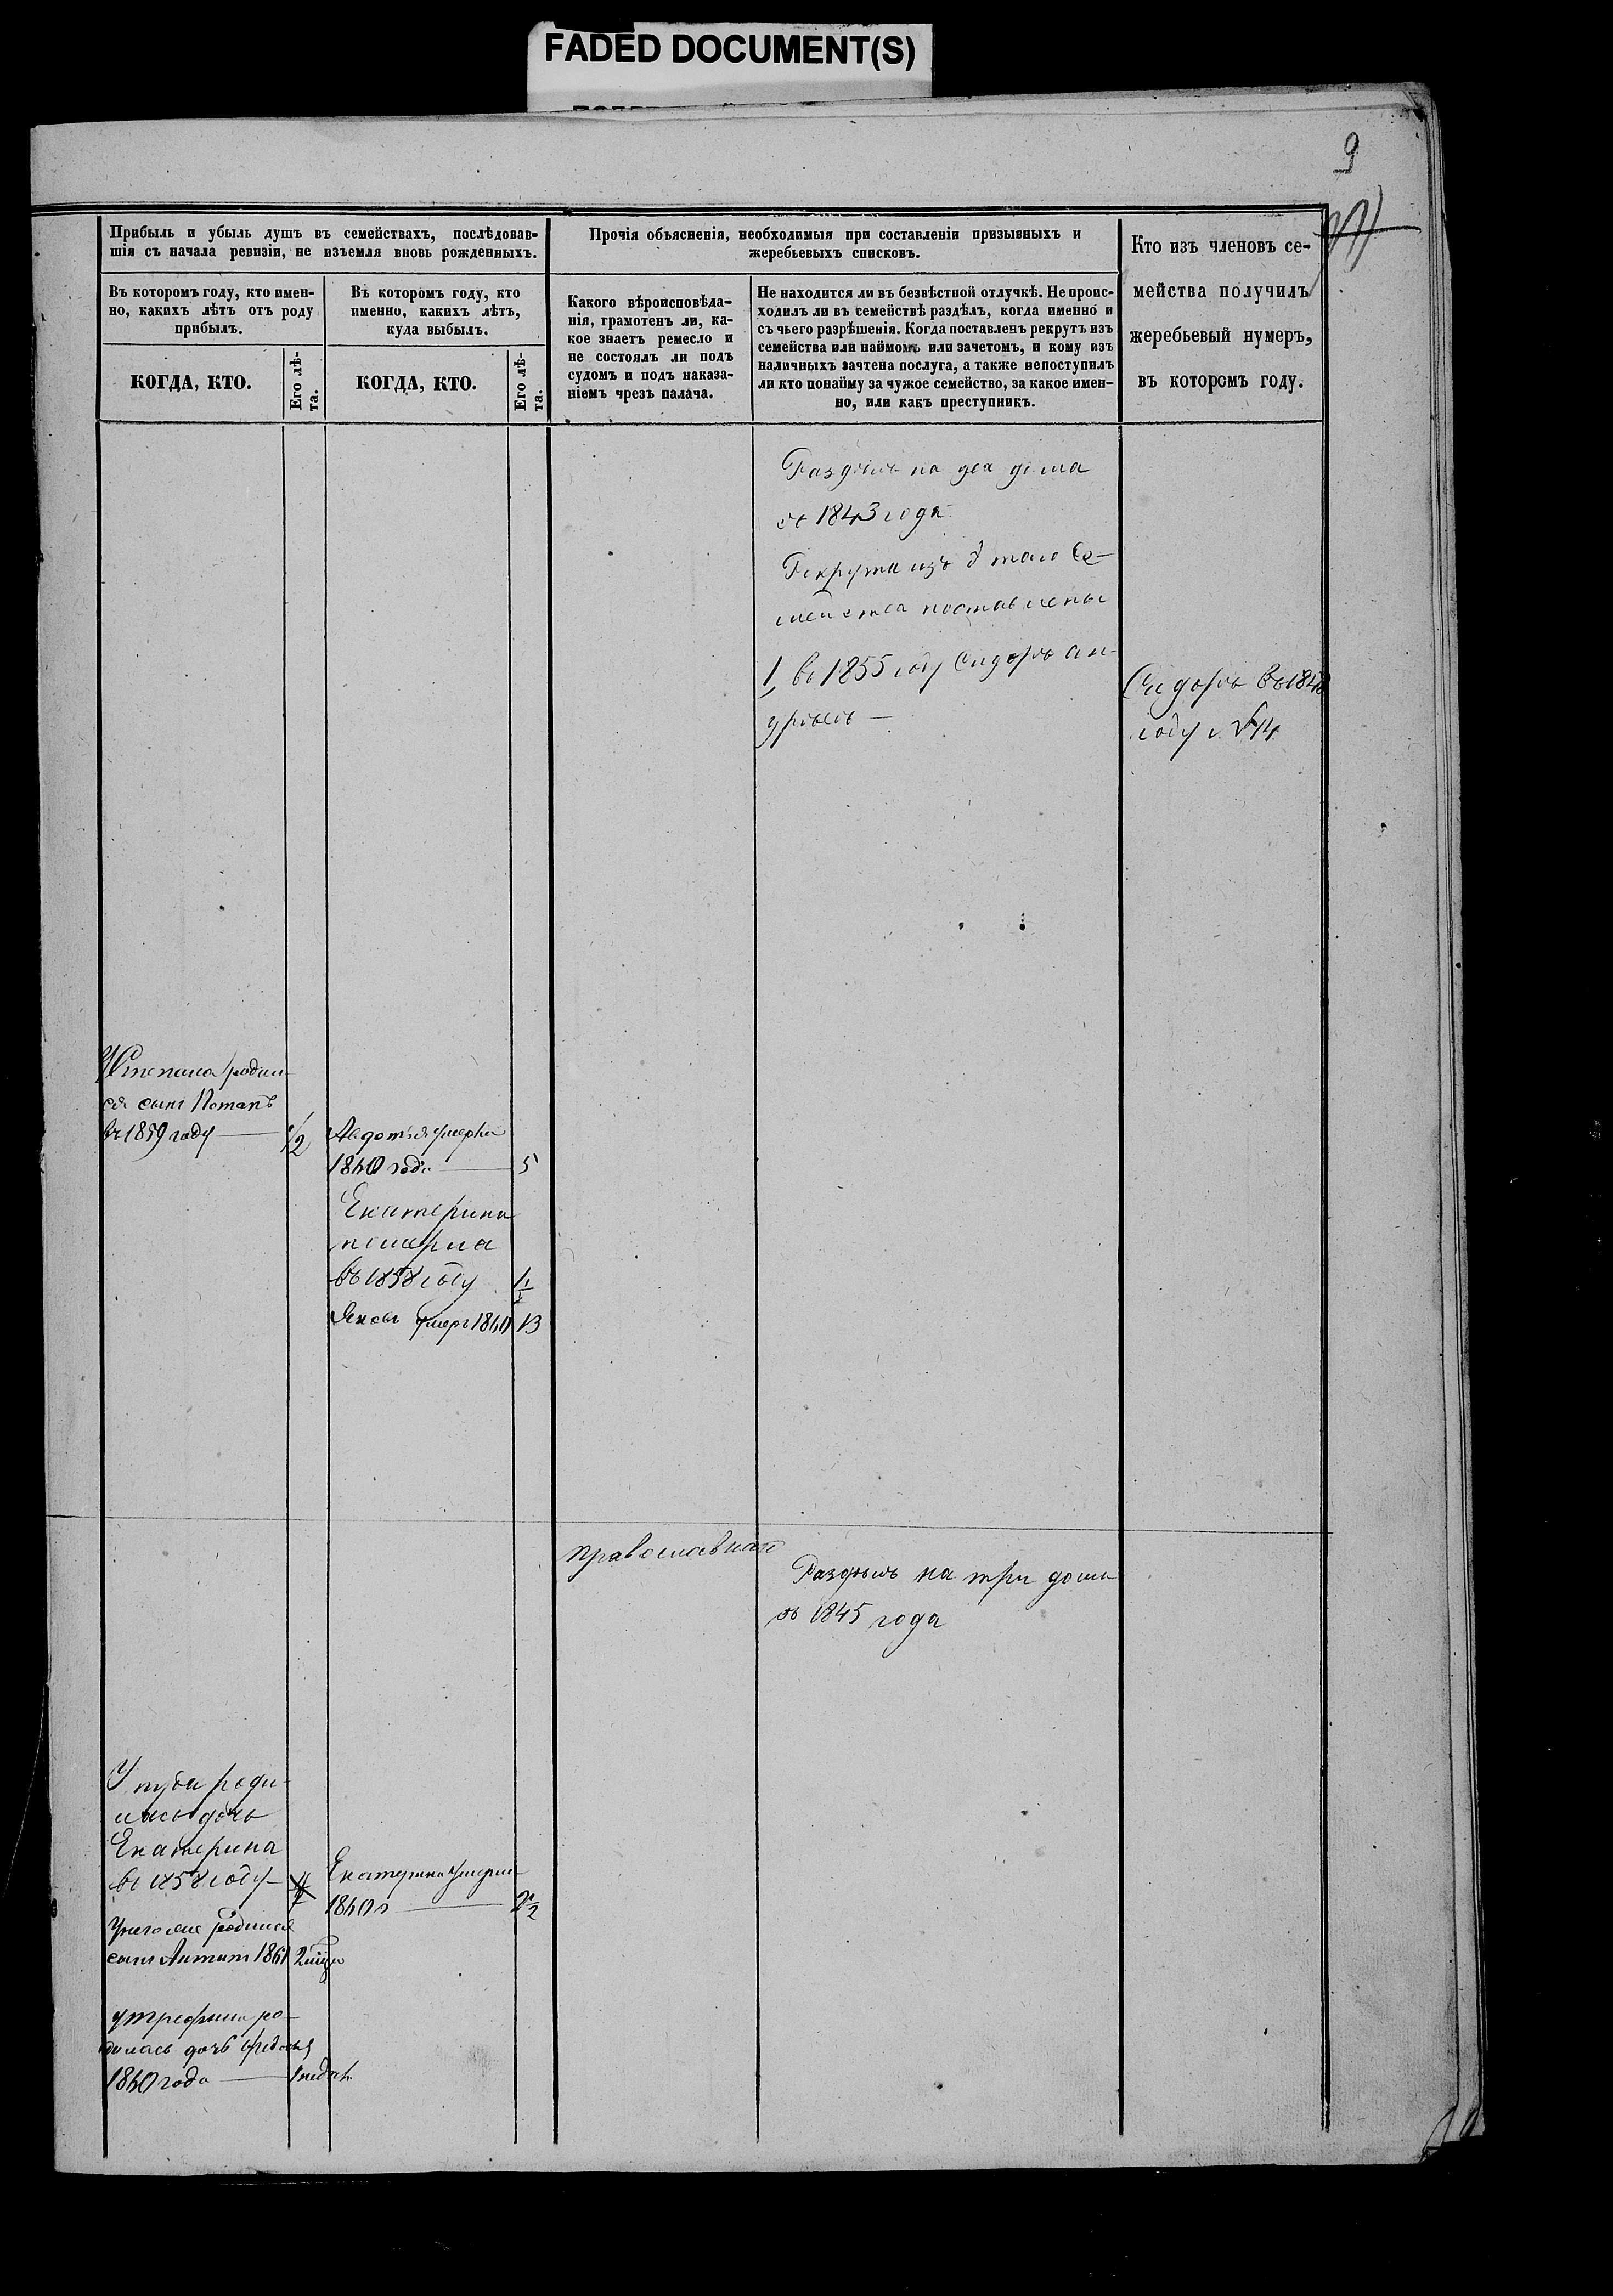 FADED DOCUMENT(S)
9
Прибыль и убыль душъ въ семействахъ, послѣдовав-
шія съ начала ревизіи, не изъемля вновь рожденныхъ.
Въ которомъ году, кто имен-
но, какихъ лѣтъ отъ роду
прибылъ.
КОГДА, КТО.
Его лѣ-
та.
Въ которомъ году, кто
именно, какихъ лѣтъ,
куда выбылъ.
КОГДА, КТО.
Его лѣ-
та.
Прочія объясненія, необходимыя при составленіи призывныхъ и
жеребьевыхъ списковъ.
Какого вѣроисповѣда-
нія, грамотенъ ли, ка-
кое знаетъ ремесло и
не состоялъ ли подъ
судомъ и подъ наказа-
ніемъ чрезъ палача.
Не находится ли въ безвѣстной отлучкѣ. Не проис-
ходилъ ли въ семействѣ раздѣлъ, когда именно и
съ чьего разрѣшенія. Когда поставленъ рекрутъ изъ
семейства или наймомъ или зачетомъ, и кому изъ
наличныхъ зачтена послуга, а также непоступилъ
ли кто понайму за чужое семейство, за какое имен-
но, или какъ преступникъ.
Кто изъ членовъ се-
мейства получилъ
жеребьевый нумеръ,
въ которомъ году.
Раздѣлъ на два дома
съ 1843 года
Рекрута изъ этаго Се-
мейства поставлены
1, въ 1855 году Сидоръ Ан-
Сидоръ въ 184
году № 14
У Степана родил-
ся сынъ Потапъ
въ 1859 году — 1/2
Авдотья умерла
1860 года — 5
Екатерина
померла
въ 1858 году 1/2
Яковъ умеръ 1860 13
православнаго
Раздѣлъ на три дома
въ 1845 года
родилась дочь
Екатерина
въ 1858 году —
Екатерина умерла
1860 — 2 1/2
родился
сынъ Антипъ 1861
у Трефила ро-
дилась дочь Федосья
1860 года — 1 недел.